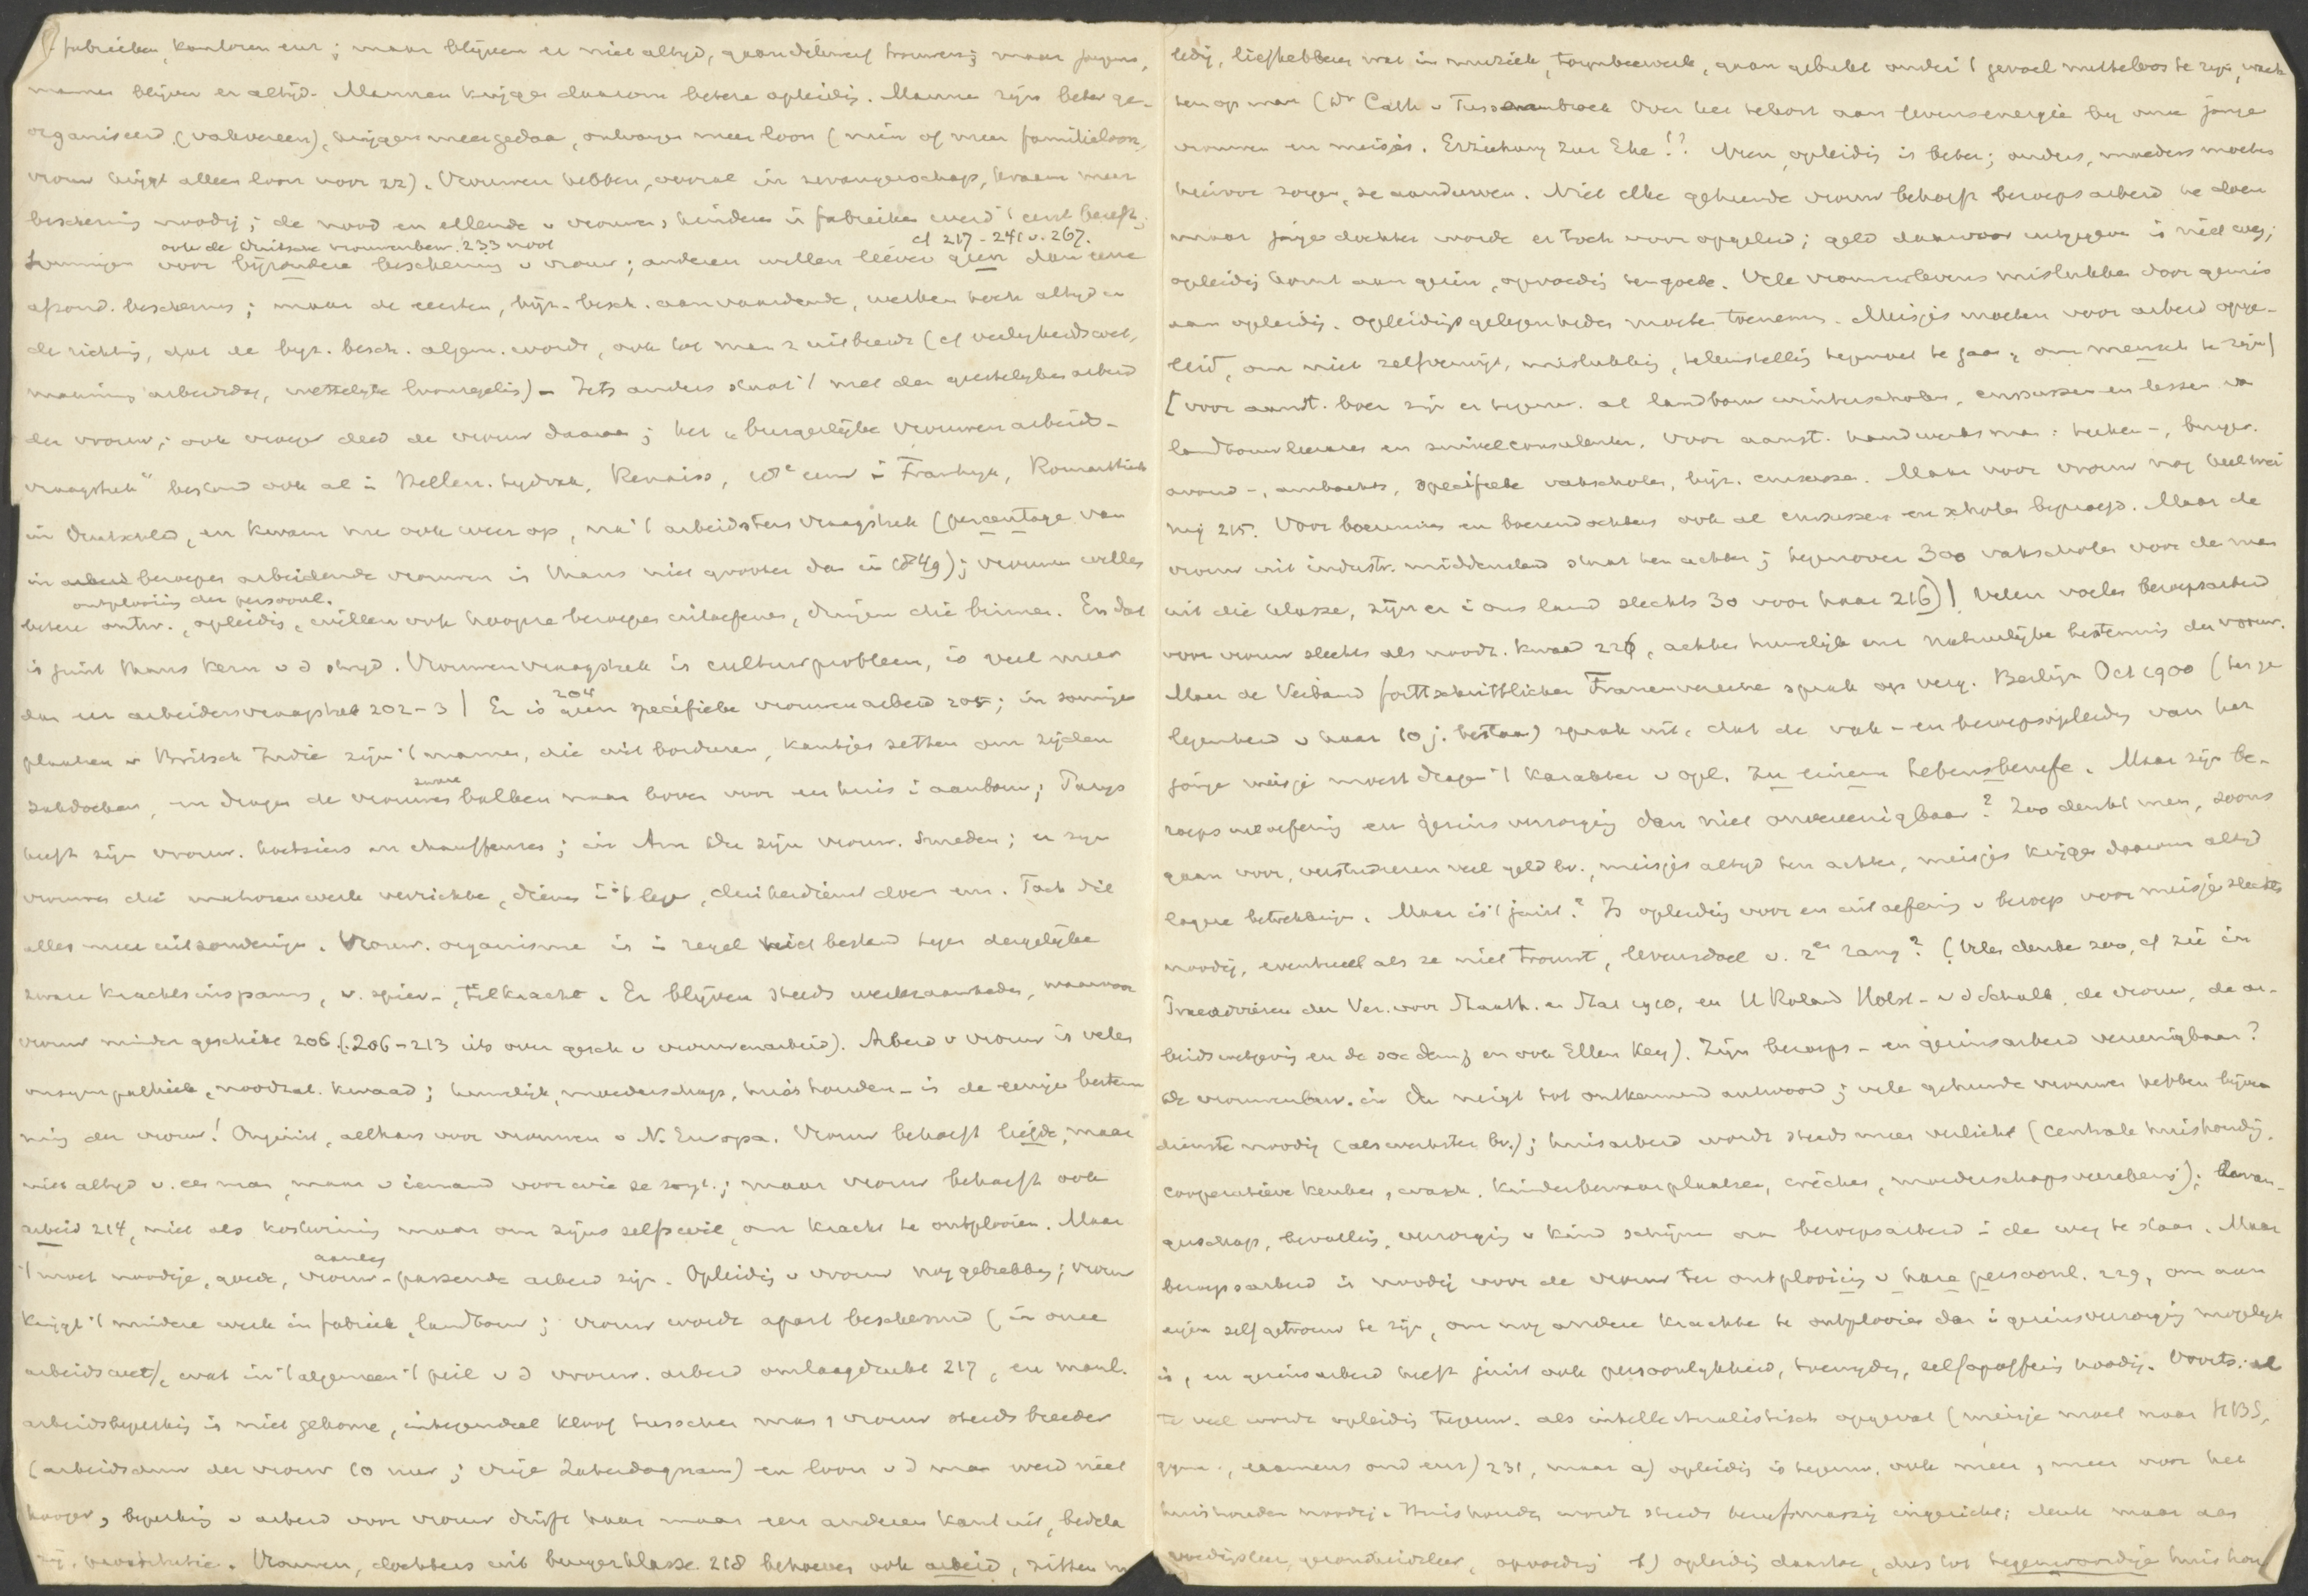 fabrieken, kantoren enz; maar blijven er niet altijd, gaan dikwijls trouwen; maar jongens,
mannen blijven er altijd. Mannen krijgen daarom betere opleidig. Mannen zijn beter ge-
organiseerd (vakvereen), krijgen meer gedaan, ontvangen meer loon (min of meer familieloon,
vrouw krijgt alleen loon voor zz). Vrouwen hebben, vooral in zwangerschap, kraam meer
beschermig noodig; de nood en ellende v vrouwen, kinderen in fabrieken werd 't eerst beseft;
ook de Duitsche vrouwenbew. 233 noot cf 217-241 v. 267.
Sommigen voor bijzondere beschermig v vrouw; anderen willen liever geen dan eene
afzond. bescherming; maar de eersten, bijz. besch. aanvaardende, werken toch altijd in
de richtig, dat de bijz. besch. algem. wordt, ook tot man z uitbreidt (cf veiligheidswet,
maximum arbeidsdag, wettelijke loonregelig) - Iets anders staat 't met den geestelijken arbeid
der vrouw; ook vroeger deed de vrouw daaraan; het "burgerlijke vrouwenarbeids-
vraagstuk" bestond ook al i Hellen. tijdvak, Renaiss, 18e eeuw i Frankrijk, Romantiek
in Duitschld, en kwam nu ook weer op, na 't arbeidsters vraagstuk (percentage van
in beroepen arbeidende vrouwen is thans niet grooter dan in 1849); vrouwen willen
ontplooiing der persoonl.
betere ontw., opleidig, willen ook hoogere beroepen uitoefenen, dringen die binnen. En dat
is juist thans kern v d strijd. Vrouwenvraagstuk is cultuurprobleem, is veel meer
204
dan een arbeidersvraagstuk 202-3 | Er is geen specifieke vrouwenarbeid 205; in sommige
plaatsen v Britsch Indie zijn 't mannen, die wit borduren, kantjes zetten om zijden
zware
zakdoeken, en dragen de vrouwen balken naar boven voor een huis i aanbouw; Parijs
heeft zijn vrouw. koetsiers en chauffeuses; in Am. zijn vrouw. smeden; er zijn
vrouwen die matrozenwerk verrichten, dienen i 't leger, dienst doen enz. Toch dit
alles meer uitzonderige. Vrouw. organisme is i regel niet bestand tegen dergelijke
zware krachtsinspann, v. spier-, tilkracht. Er blijven steeds werkzaamheden, waarvoor
vrouw minder geschikt 206 (206-213 iets over gesch v vrouwenarbeid). Arbeid v vrouw is velen
onsympathiek, noodzak. kwaad; huwelijk, moederschap, huishouden - is de eenige bestem-
mig der vrouw! Onjuist, althans voor vrouwen v N. Europa. Vrouw behoeft liefde, maar
niet altijd v. een man, maar v iemand voor wie ze zorgt.; maar vrouw behoeft ook
arbeid 214, niet als kostwinnig maar om zijns zelfs wil, om kracht te ontplooien. Maar
aanleg
't moet noodige, goede, vrouw-passende arbeid zijn. Opleidig v vrouw nog gebrekkig; vrouw
krijgt 't mindere werk in fabriek, landbouw; vrouw wordt apart beschermd (in onze
arbeidswet), wat in 't algemeen 't peil v d vrouw. arbeid omlaagdrukt 217, en manl.
arbeidsbeperkig is niet gekomen, integendeel kloof tusschen man, vrouw steeds breeder
(arbeidsduur der vrouw 10 uur; vrije Zaterdagnam) en loon v d man werd niet
hooger, beperkig v arbeid voor vrouw drijft haar naar een anderen kant uit, bedela
rij, prostitutie. Vrouwen, dochters uit burgerklasse 218 behoeven ook arbeid, zitten nu
ledig, liefhebberen wat in muziek, tooneelwerk, gaan gebukt onder 't gevoel nutteloos te zijn, wach
ten op man (Dr Cath v Tussenbroek Over het tekort aan levensenergie bij onze jonge
vrouwen en meisjes. Erziehung zur Ehe!? Neen, opleidig is beter; ouders, moeders moeten
hiervoor zorgen, ze aandurven. Niet elke gehuwde vrouw behoeft beroepsarbeid te doen
maar jonge dochter worde er toch voor opgeleid; geld daarvoor uitgegeven is niet weg;
opleidig komt aan gezin, opvoedig ten goede. Vele vrouwenlevens mislukken door gemis
aan opleidig. Opleidigsgelegenheden moeten toenemen. Meisjes moeten voor arbeid opge-
leid, om niet zelfverwijt, mislukkig, teleurstellig tegemoet te gaan, om mensch te zijn |
[voor aanst. boer zijn er tegenw. al landbouw winterscholen, cursussen en lessen van
landbouwleeraren en zuivelconsulenten. Voor aanst. handwerksman: teeken-, burger-
avond-, ambachts, specifieke vakscholen, bijz. cursussen. Maar voor vrouw nog heel wei
nig 215. Voor boerinnen en boerendochters ook al cursussen en scholen beproefd. Maar de
vrouw uit industr. middenstand staat ten achter; tegenover 300 vakscholen voor de man
uit die klasse, zijn er i ons land slechts 30 voor haar 216)! Velen voelen beroepsarbeid
voor vrouw slechts als noodz. kwaad 226, achten huwelijk enz natuurlijke bestemmig der vrouw.
Maar de Verband fortschrittlicher Frauenvereine sprak op verg. Berlijn Oct 1900 (ter ge
legenheid v haar 10 j. bestaan) sprak uit, dat de vak- en beroepsopleidig van het
jonge meisje moest dragen 't karakter v opl. zu einem Lebensberufe. Maar zijn be-
roepsuitoefenig en gezinsverzorgig dan niet onvereenigbaar? Zoo denkt men, zoons
gaan voor, verstudeeren veel geld bv., meisjes altijd ten achter, meisjes krijgen daarom altijd
lagere betrekkingen. Maar is 't juist? Is opleidig voor en uitoefenig v beroep voor meisje slechts
noodig, eventueel als ze niet trouwt, levensdoel v. 2en rang? (Velen denken zoo, cf zie in
der Ver. voor Staath. en Stat 1910, en H Roland Holst-v d Schalk, de vrouw, de ar-
beidswetgevig en de soc dem; en ook Ellen Key). Zijn beroeps- en gezinsarbeid vereenigbaar?
De vrouwenbew. in Du neigt tot ontkennend antwoord; vele gehuwde vrouwen hebben bijver
dienste noodig (als werkster bv.); huisarbeid wordt steeds meer verlicht (centrale huishoudig,
cooperatieve keuken, wasch. kinderbewaarplaatsen, crèches, moederschapsverzekerig); zwan-
gerschap, bevallig, verzorgig v kind schijnen om beroepsarbeid i de weg te staan. Maar
beroepsarbeid is noodig voor de vrouw ter ontplooiing v hare persoonl. 229, om aan
eigen zelf getrouw te zijn, om nog andere krachten te ontplooien dan i gezinsverzorgig mogelijk
is, en gezinsarbeid heeft juist ook persoonlijkheid, toewijdig, zelfopofferig noodig. Voorts: al
te veel wordt opleidig tegenw. als intellectualistisch opgevat (meisje moet naar HBS,
gymn., examens ond enz) 231, maar a) opleidig is tegenw. ook meer, meer voor het
huishouden noodig. Huishoudig wordt steeds berufsmässig ingericht; denk maar aan
voedigsleer, gezondheidsleer, opvoedig b) opleidig daartoe, dus tot tegenwoordige huishou